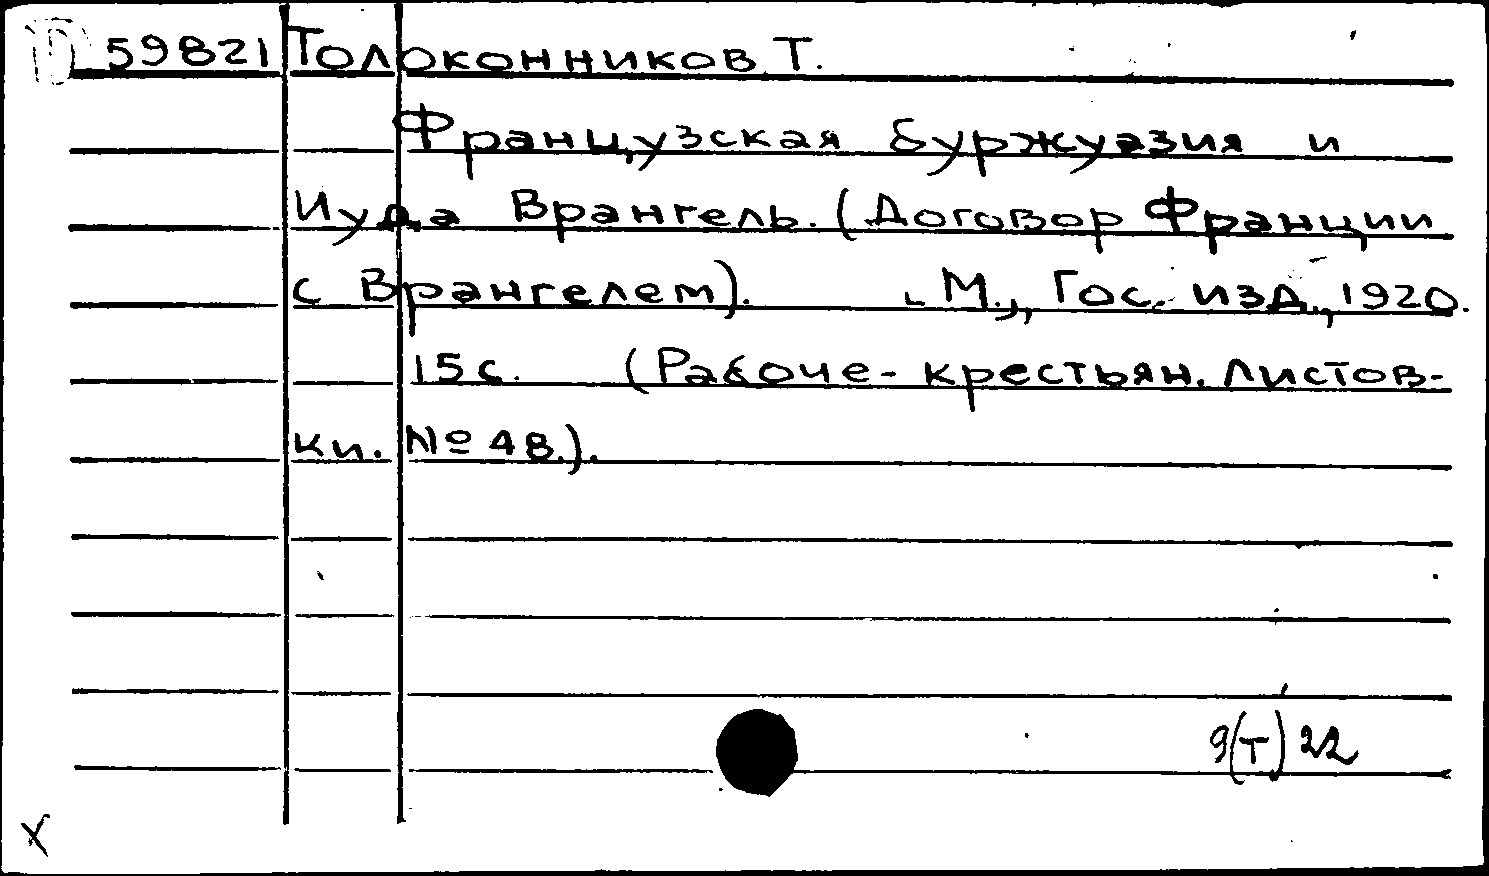 59821 Толоконников Т.
Французская буржуазия и
Иуда Врангель. (Договор Франции
с Врангелем). М., Гос. изд., 1920.
15 с. (Рабоче-крестьян. листов-
ки. № 48.).
9(Т)22
X